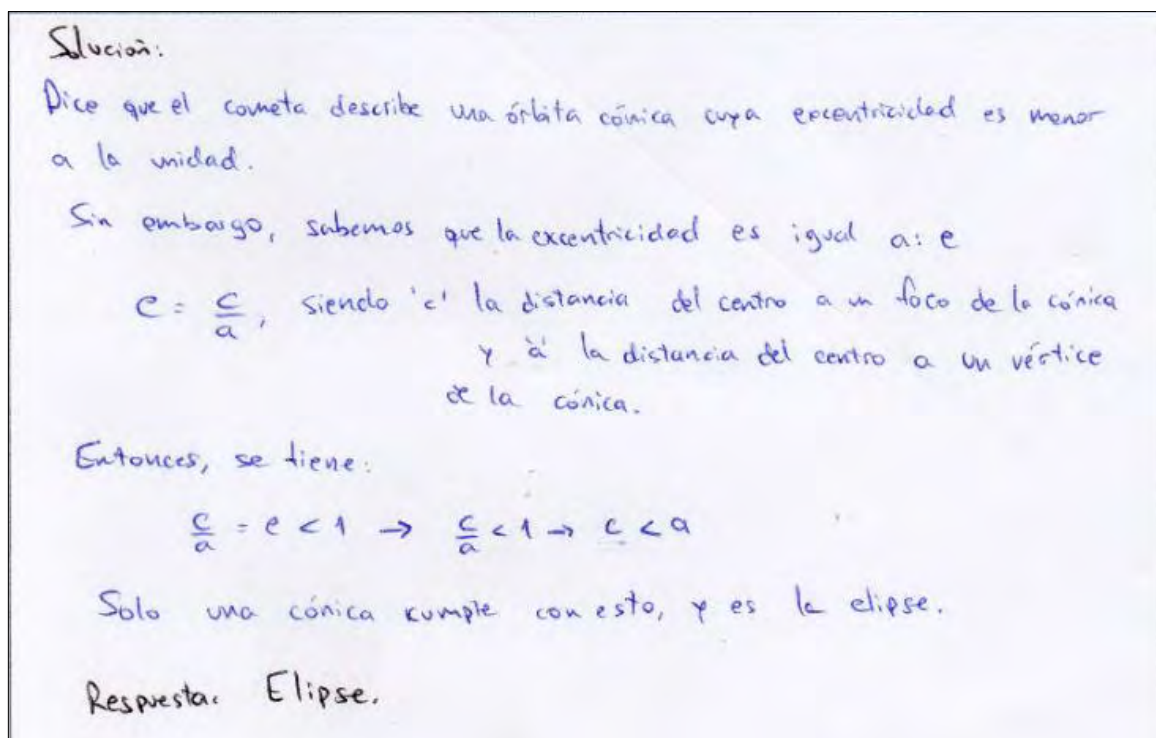 Solución:
Dice que el cometa describe una órbita cónica cuya excentricidad es menor
a la unidad.
Sin embargo, sabemos que la excentricidad es igual a: e
e = c/a, siendo 'c' la distancia del centro a un foco de la cónica
y 'a' la distancia del centro a un vértice
de la cónica.
Entonces, se tiene:
c/a = e < 1 → c/a < 1 → c < a
Solo una cónica cumple con esto, y es la elipse.
Respuesta. Elipse.